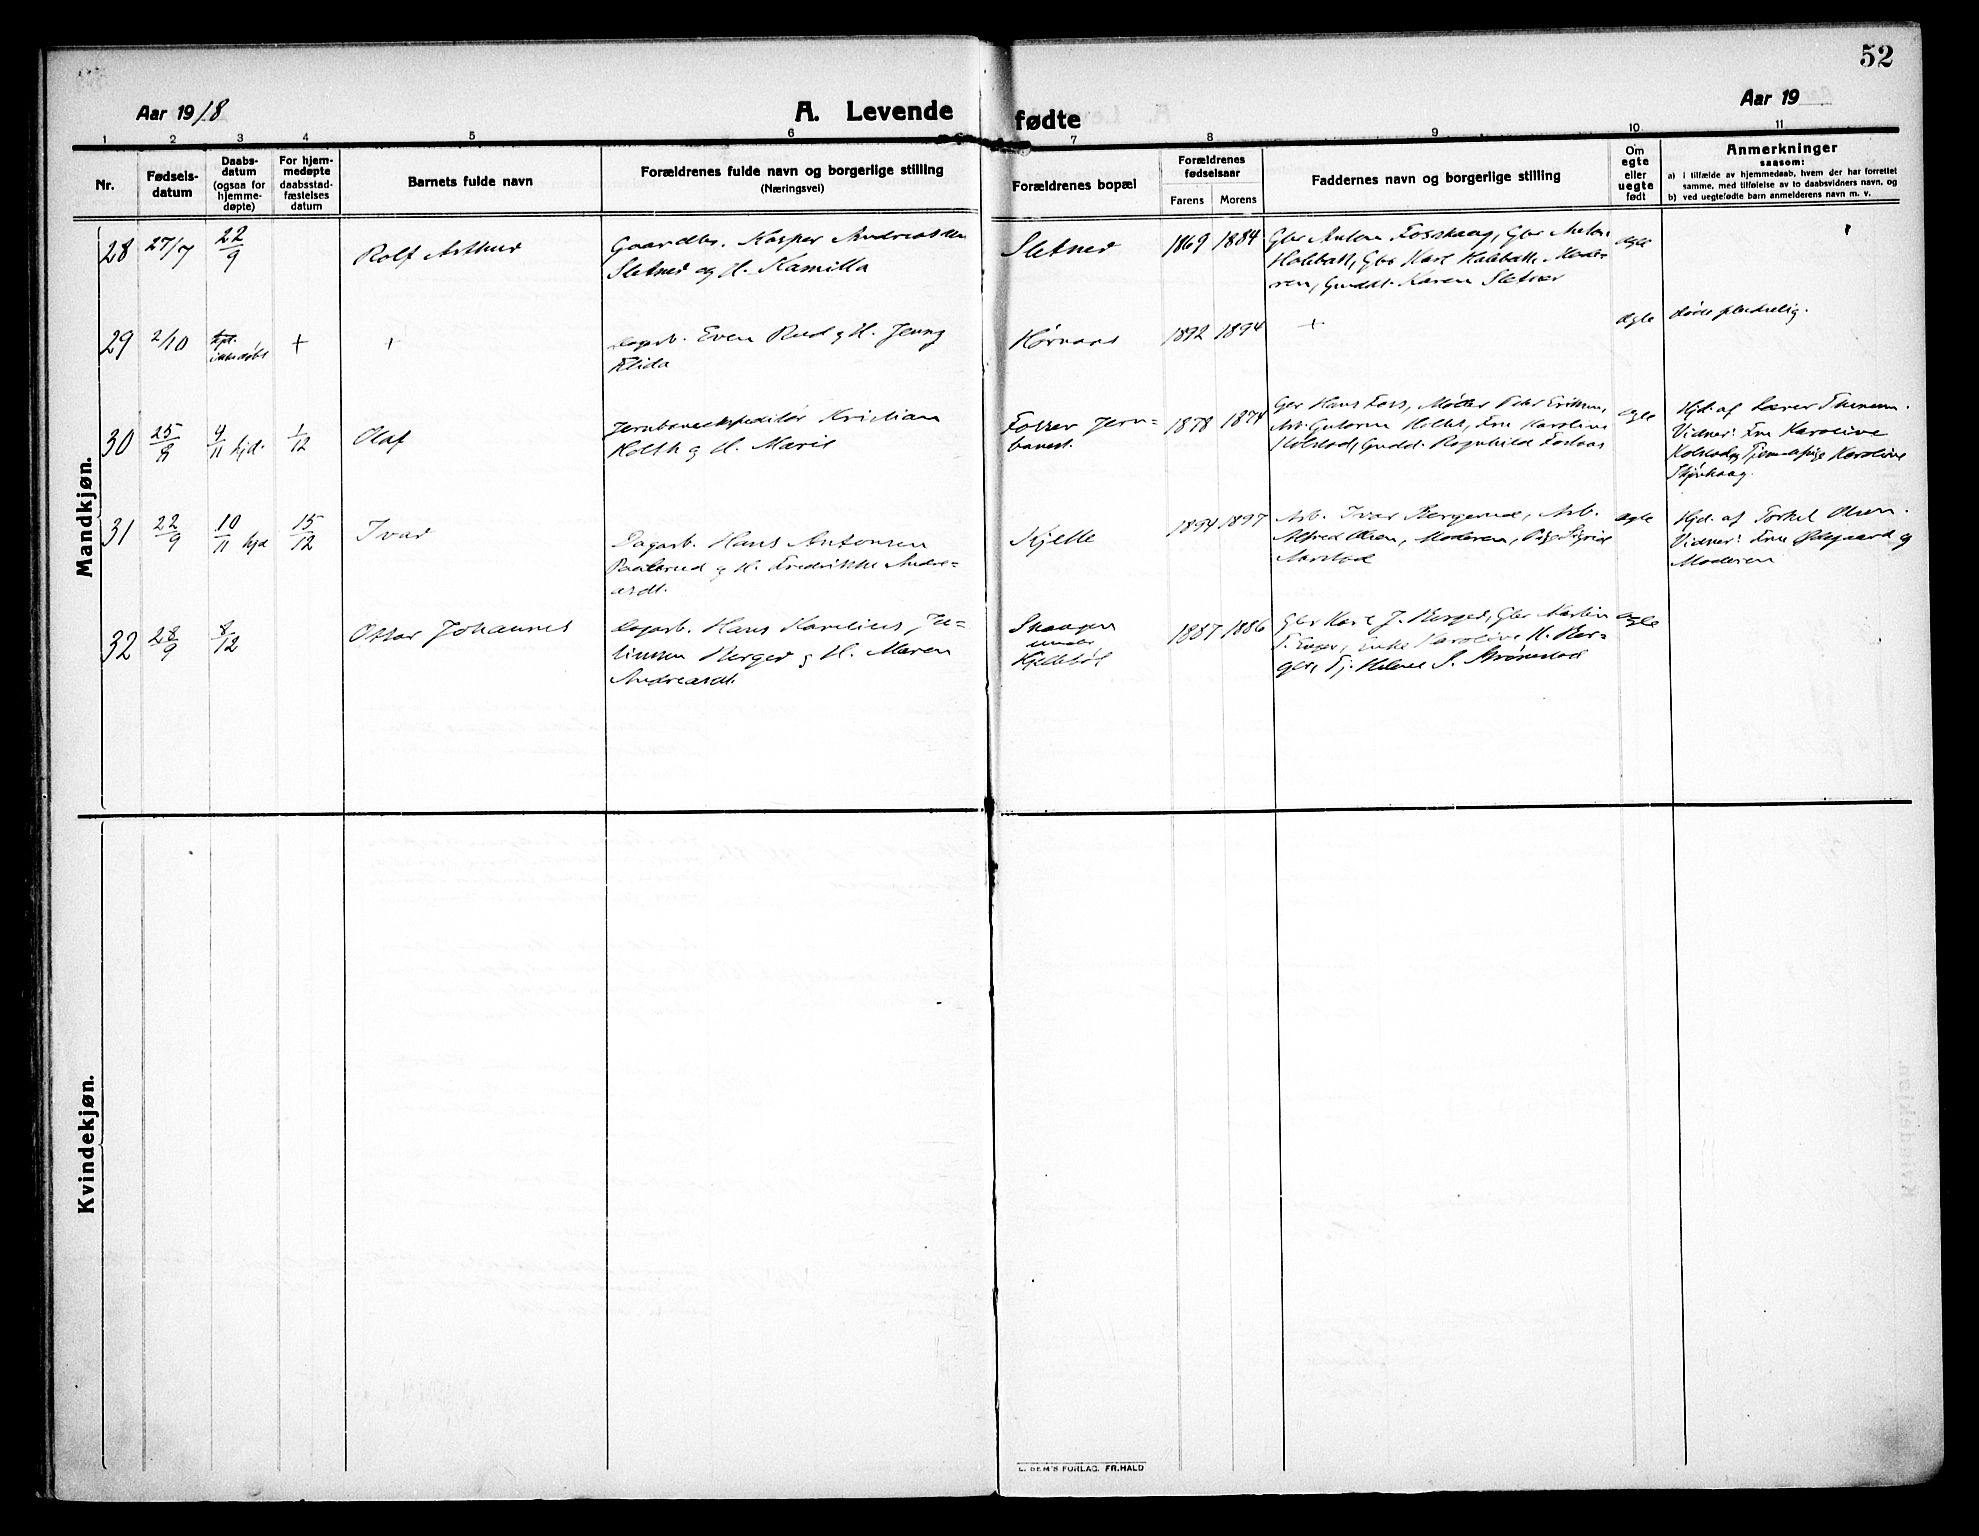 52
Aar 1918
A. Levende fødte
Aar 19
1 2 3 4 5 6 7 8 9 10 11
Nr.
Fødsels-
datum
Daabs-
datum
(ogsaa for
hjemme-
døpte)
For hjem-
medøpte
daabsstad-
fæstelses
datum
Barnets fulde navn
Forældrenes fulde navn og borgerlige stilling
(Næringsvei)
Forældrenes bopæl
Forældrenes
fødselsaar
Farens Morens
Faddernes navn og borgerlige stilling
Om
egte
eller
uegte
født
Anmerkninger
saasom:
a) i tilfælde av hjemmedaab, hvem der har forrettet
samme, med tilføielse av to daabsvidners navn, og
b) ved uegtefødte barn anmelderens navn m. v.
Mandkjøn.
28 27/7 22/9 Rolf Arthur
Gaardbr. Kasper Andreassen
Sletner og H. Kamilla
Sletner 1869 1884
Gbr Anton Fosshaug, Gbr Anton
Holebakk, Gbr Karl Holebakk, Mode-
ren, Gmddt. Karen Sletner
ægte
29 2/10 + +
Dagarb. Even Rud og H. Jenny
Elida
1892 1894 + ægte
døde pludselig.
30 25/8 4/11 hjd. 1/12 Olaf
Jernbaneekspeditør Kristian
Holth og H. Marie
Fosser Jern-
banest.
1878 1874
Gbr Hans Foss, Møller Peter Eriksen,
Arb. Guttorm Holth, Fru Karoline
Kolstad, Gmddt. Ragnhild Fosser
ægte
Hjd. af Lærer
Vidner: Fru Karoline
Kolstad og Tjenestepige Karoline
31 22/9 10/11 hjd 15/12 Ivar
Dagarb. Hans Antonsen
og H. Fredrikke Andre-
asdt.
Kjelle 1894 1897
Arb. Ivar Bergerud, Arb.
Alfred Olsen, Moderen, Pige Sigrid
Aarstad
ægte
Hjd. af Torkel Olsen.
Vidner: Fru Ødegaard og
Moderen
32 28/9 8/12 Ottar Johannes
Dagarb. Hans Karelius Ju-
liussen Berger og H. Maren
Andreasdt.
Skaugen
under
1887 1886
Gbr Karl J. Berger, Gbr Martin
T. Enger, Enke Karoline H. Ber-
ger, Tj. Helene S.
ægte
Kvindekjøn.
FORLAG. FR. HALD